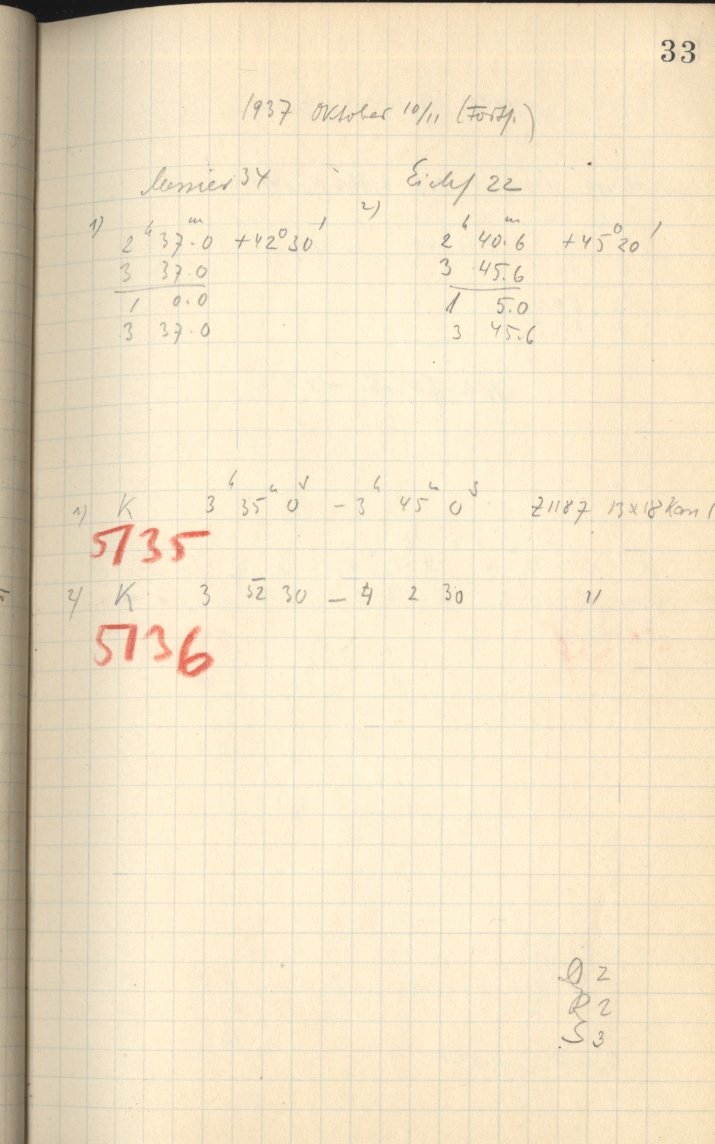 33
1937 Oktober 10/11 (Forts.)
Messier 34
1)
2ʰ 37ᵐ.0 +42⁰30′
3 37.0
1 0.0
3 37.0
22
2)
2ʰ 40ᵐ.6 +45⁰20′
3 45.6
1 5.0
3 45.6
1) K 3ʰ 35ᵐ 0ˢ – 3ʰ 45ᵐ 0ˢ Z1187 13x18
5135
2) K 3 52 30 – 4 2 30 "
5136
2
R 2
S 3